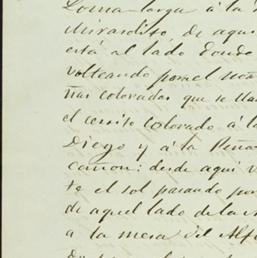 Loma larga á la
Mirandito, de aqui
está al lado donde
volteando por el
ñas coloradas que se lla
el cerrito Colorado á l
Diego y á la Peña
cañon: desde aqui v
te el sol pasando por
de aquel lado de la
a la mesa del Alf